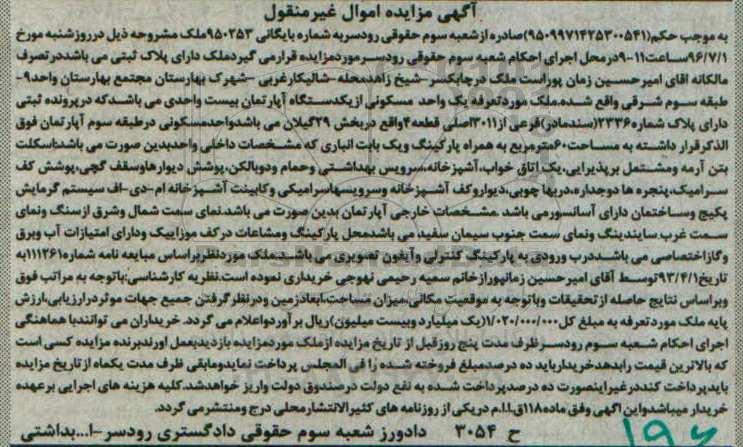 آگهی مزایده اموال غیرمنقول
به موجب حکم(۹۵۰۹۹۷۱۴۲۵۳۰۰۵۴۱)صادره ازشعبه سوم حقوقی رودسربه شماره بایگانی ۹۵۰۲۵۳ملک مشروحه ذیل درروزشنبه مورخ
۹۶/۷/۱ساعت۱۱-۹درمحل اجرای احکام شعبه سوم حقوقی رودسرموردمزایده قرارمی گیردملک دارای پلاک ثبتی می باشددرتصرف
مالکانه اقای امیرحسین زمان پوراست ملک درچابکسر-شیخ زاهدمحله-شالیکارغربی -شهرک بهارستان مجتمع بهارستان واحد۹-
طبقه سوم شرقی واقع شده.ملک موردتعرفه یک واحد مسکونی ازیکدستگاه آپارتمان بیست واحدی می باشدکه درپرونده ثبتی
دارای پلاک شماره۲۳۳۶(سندمادر)فرعی از۳۰۱۱اصلی قطعه۴واقع دربخش ۲۹گیلان می باشدواحدمسکونی درطبقه سوم آپارتمان فوق
الذکرقرار داشته به مساحت۶۰مترمربع به همراه پارکینگ ویک بابت انباری که مشخصات داخلی واحدبدین صورت می باشد:اسکلت
بتن آرمه ومشتمل برپذیرایی،یک اتاق خواب،آشپزخانه،سرویس بهداشتی وحمام ودوبالکن،پوشش دیوارهاوسقف گچی،پوشش کف
سرامیک،پنجره ها دوجداره،دربها چوبی،دیوارو کف آشپزخانه وسرویسهاسرامیکی وکابینت آشپزخانه ام-دی-اف سیستم گرمایش
پکیج وساختمان دارای آسانسورمی باشد .مشخصات خارجی آپارتمان بدین صورت می باشد.نمای سمت شمال وشرق ازسنگ ونمای
سمت غرب سایندینگ ونمای سمت جنوب سیمان سفید،می باشدمحل پارکینگ ومشاعات درکف موزاییک ودارای امتیازات آب وبرق
وگازاختصاصی می باشددرب ورودی به پارکینگ کنترلی وآیفون تصویری می باشد.ملک موردنظربراساس مبایعه نامه شماره۱۱۱۲۶۱به
تاریخ۹۳/۴/۱توسط آقای امیرحسین زمانپورازخانم سمیه رحیمی نهوجی خریداری نموده است.نظریه کارشناسی:باتوجه به مراتب فوق
وبراساس نتایج حاصله ازتحقیقات وباتوجه به موقعیت مکانی،میزان مساحت،ابعادزمین ودرنظرگرفتن جمیع جهات موثردرارزیابی،ارزش
پایه ملک موردتعرفه به مبلغ کل۱/۰۲۰/۰۰۰/۰۰۰(یک میلیاردوبیست میلیون)ریال برآوردواعلام می گردد. خریداران می توانندبا هماهنگی
اجرای احکام شعبه سوم رودسرظرف مدت پنج روزقبل از تاریخ مزایده ازملک موردمزایده بازدیدبعمل اورندبرنده مزایده کسی است
که بالاترین قیمت رابدهدخریدارباید ده درصدمبلغ فروخته شده را فی المجلس پرداخت نمایدومابقی ظرف مدت یکماه ازتاریخ مزایده
بایدپرداخت کنددرغیراینصورت ده درصدپرداخت شده به نفع دولت درصندوق دولت واریز خواهدشد.کلیه هزینه های اجرایی برعهده
خریدار میباشدواین اگهی وفق ماده۱۱۸ق.ا.ا.م دریکی از روزنامه های کثیرالانتشارمحلی درج ومنتشرمی گردد.
ح ۳۰۵۴ دادورز شعبه سوم حقوقی دادگستری رودسر-ا...بداشتی